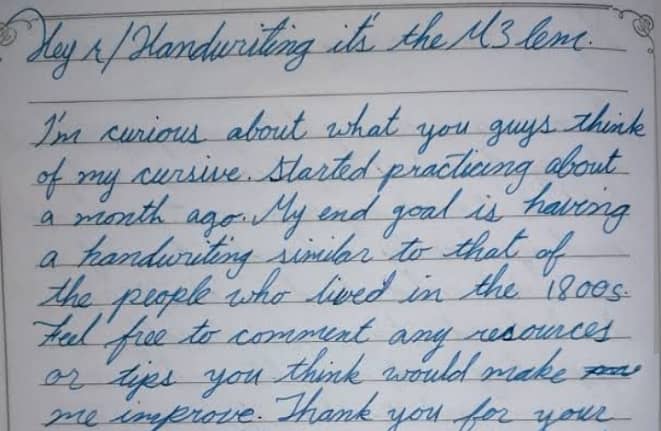 Hey r/Handwriting it's the M3 lem.
I'm curious about what you guys think
of my cursive. Started practicing about
a month ago. My end goal is having
a handwriting similar to that of
the people who lived in the 1800s.
Feel free to comment any resources
or tips you think would make
me improve. Thank you for your